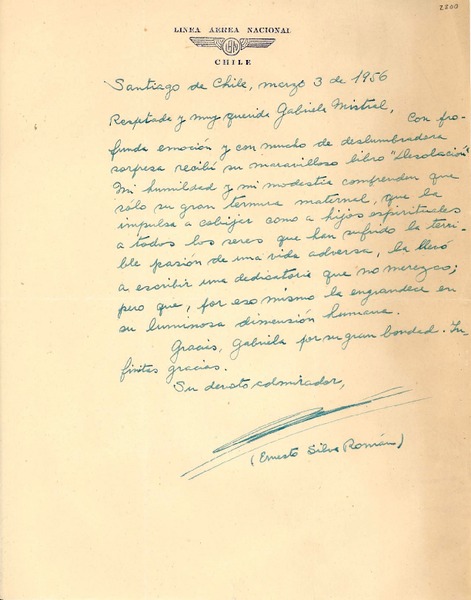 2800
LINEA AEREA NACIONAL
LAN
CHILE
Santiago de Chile, marzo 3 de 1956
Respetada y muy querida Gabriela Mistral,
Con pro-
funda emoción y con mucho de deslumbradora
sorpresa recibí su maravilloso libro "Desolación".
Mi humildad y mi modestia comprenden que
sólo su gran ternura maternal, que la
impulsa a cobijar como a hijos espirituales
a todos los seres que han sufrido la terri-
ble pasión de una vida adversa, la llevó
a escribir una dedicatoria que no merezco;
pero que, por eso mismo la engrandece en
su luminosa dimensión humana.
Gracias, Gabriela por su gran bondad. In-
finitas gracias.
Su devoto admirador,
(Ernesto Silva Román)